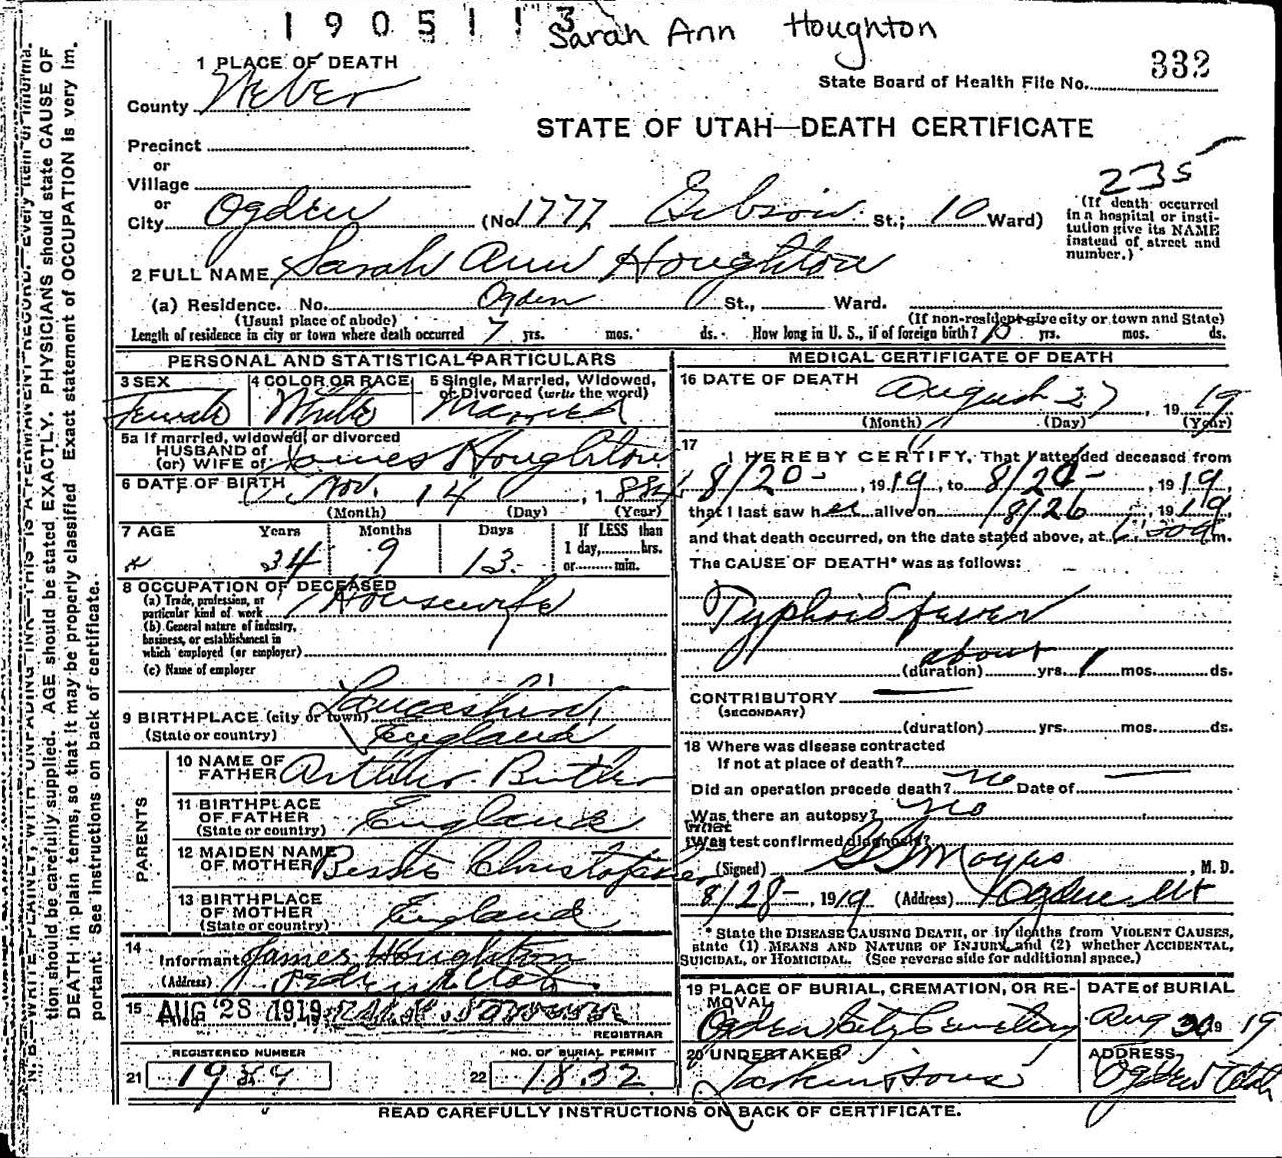 1905113
Sarah Ann Houghton
1 PLACE OF DEATH
332
State Board of Health File No.
County Weber
STATE OF UTAH—DEATH CERTIFICATE
Precinct
or
Village
235
or
City Ogden (No. 1777 Gibson St.; 10 Ward)
(If death occurred in a hospital or insti-
tution give its NAME
instead of street and
number.)
2 FULL NAME Sarah Ann Houghton
(a) Residence. No. Ogden St., Ward.
(Usual place of abode) (If non-resident give city or town and State)
Length of residence in city or town where death occurred 7 yrs. mos. ds. How long in U. S., if of foreign birth? 10 yrs. mos. ds.
PERSONAL AND STATISTICAL PARTICULARS
3 SEX Female
4 COLOR OR RACE White
5 Single, Married, Widowed,
or Divorced (write the word)
Married
5a If married, widowed, or divorced
HUSBAND of
(or) WIFE of James Houghton
6 DATE OF BIRTH Nov. 14, 1884
(Month) (Day) (Year)
7 AGE Years Months Days If LESS than
1 day,......hrs.
or......min.
34 9 13
8 OCCUPATION OF DECEASED
(a) Trade, profession, or
particular kind of work Housewife
(b) General nature of industry,
business, or establishment in
which employed (or employer)
(c) Name of employer
9 BIRTHPLACE (city or town) Lancashire,
(State or country) England
PARENTS
10 NAME OF
FATHER Arthur Butler
11 BIRTHPLACE
OF FATHER
(State or country) England
12 MAIDEN NAME
OF MOTHER
13 BIRTHPLACE
OF MOTHER
(State or country) England
14
Informant James Houghton
(Address) Ogden Utah.
15 Filed AUG 28 1919
REGISTRAR
REGISTERED NUMBER
21
NO. OF BURIAL PERMIT
22 1832
MEDICAL CERTIFICATE OF DEATH
16 DATE OF DEATH August 27, 1919
(Month) (Day) (Year)
17
I HEREBY CERTIFY, That I attended deceased from
8/20-, 1919, to 8/20-, 1919,
that I last saw her alive on 8/26, 1919,
and that death occurred, on the date stated above, at m.
The CAUSE OF DEATH* was as follows:
Typhoid fever
about
(duration) yrs. 1 mos. ds.
CONTRIBUTORY
(SECONDARY)
(duration) yrs. mos. ds.
18 Where was disease contracted
If not at place of death?
Did an operation precede death? no Date of
Was there an autopsy? no
What
Was test confirmed diagnosis?
(Signed) M. D.
8/28-, 1919 (Address) Ogden Ut
* State the DISEASE CAUSING DEATH, or in deaths from VIOLENT CAUSES,
state (1) MEANS AND NATURE OF INJURY, and (2) whether ACCIDENTAL,
SUICIDAL, or HOMICIDAL. (See reverse side for additional space.)
19 PLACE OF BURIAL, CREMATION, OR RE-
MOVAL
Ogden City Cemetery
DATE of BURIAL
Aug 30 1919
20 UNDERTAKER
Larkin & Sons
ADDRESS
Ogden Utah
READ CAREFULLY INSTRUCTIONS ON BACK OF CERTIFICATE.
N. B.—WRITE PLAINLY, WITH UNFADING INK—THIS IS A PERMANENT RECORD. Every item of informa-
tion should be carefully supplied. AGE should be stated EXACTLY. PHYSICIANS should state CAUSE OF
DEATH in plain terms, so that it may be properly classified. Exact statement of OCCUPATION is very im-
portant. See instructions on back of certificate.